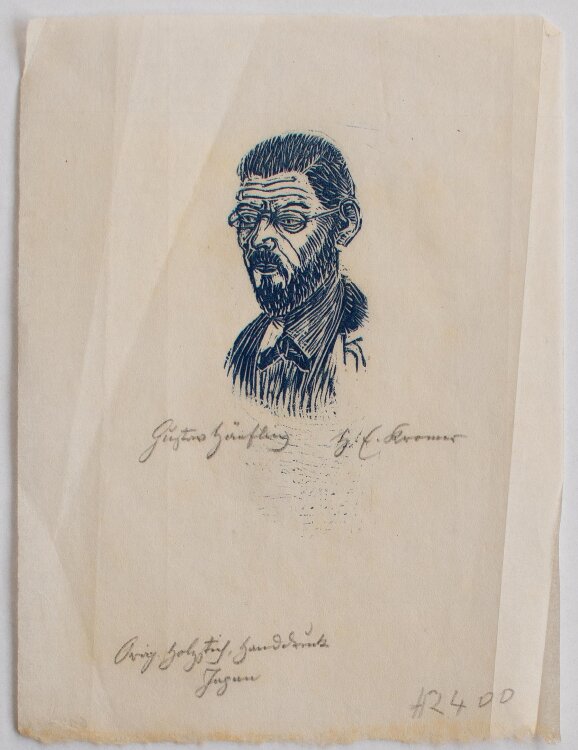 Gustav Häußling H. E. Kromer
K
Orig. Holzstich, Handdruck
Japan
HR400